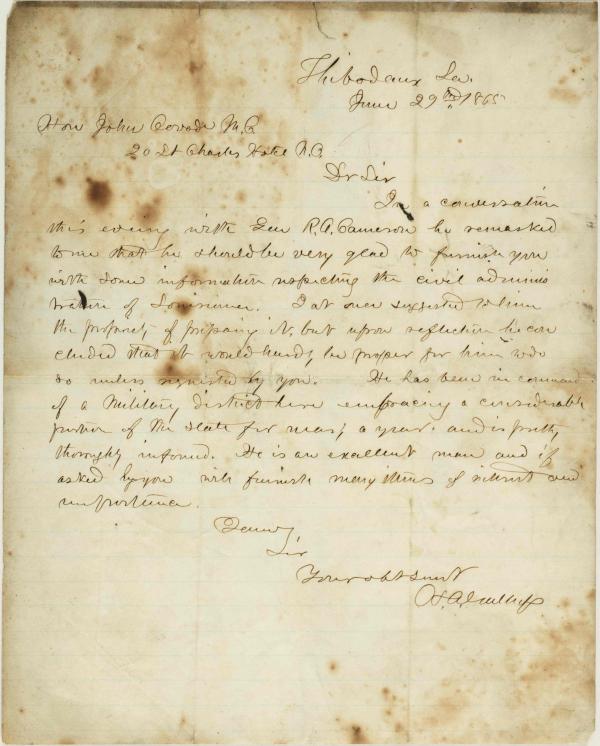 Thibodaux La.
June 29th 1865
Hon John Covode M.C.
St Charles Hotel N.O.
Dr Sir
In a conversation
this evening with Gen R.A. Cameron he remarked
to me that he should be very glad to furnish you
with some information respecting the civil adminis
tration of Louisiana. I at once suggested to him
the propriety of preparing it, but upon reflection he con
cluded that it would hardly be proper for him to do
so unless requested by you. He has been in command
of a Military district here embracing a considerable
portion of the State for nearly a year and is pretty
thoroughly informed. He is an excellent man and if
asked by you will furnish many items of interest and
importance.
Sir
Your obt Servt